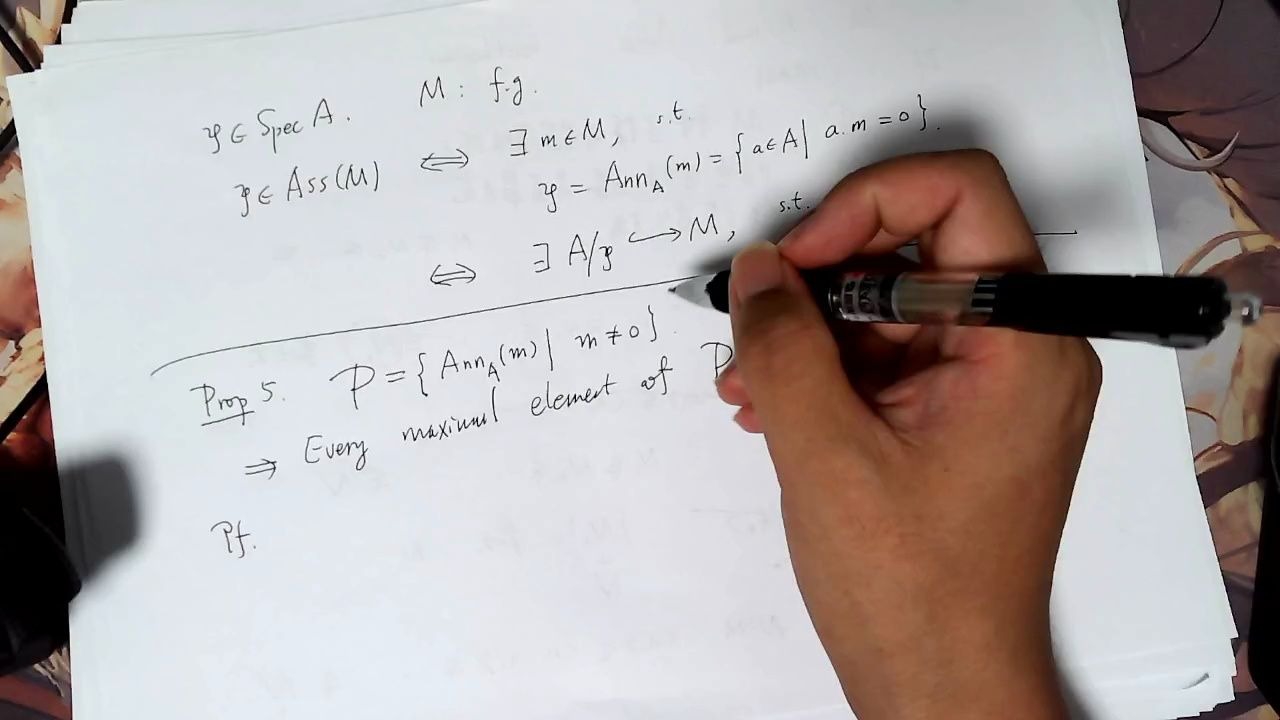 𝔭 ∈ Spec A. M : f.g.
𝔭 ∈ Ass(M) ⟺ ∃ m ∈ M, s.t.
𝔭 = Ann_A(m) = { a ∈ A | a.m = 0 }.
⟺ ∃ A/𝔭 ↪ M, s.t.
Prop 5. P = { Ann_A(m) | m ≠ 0 }.
⇒ Every maximal element of P
Pf.